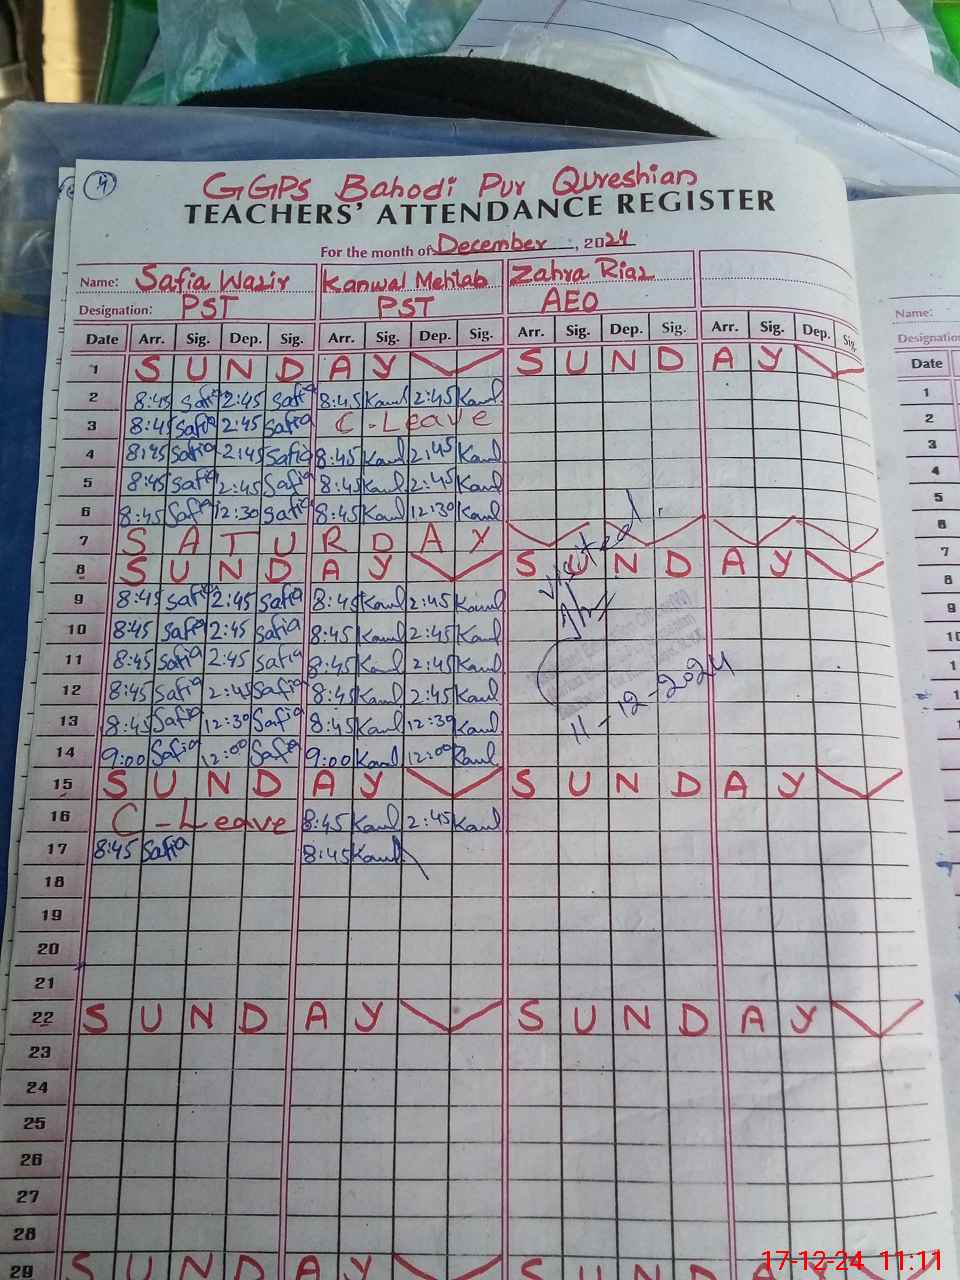 4
GGPS Bahodi Pur Qureshian
TEACHERS' ATTENDANCE REGISTER
For the month of December, 2024
Name: Safia Wazir Kanwal Mehtab Zahra Riaz
Designation: PST PST AEO
Date Arr. Sig. Dep. Sig. Arr. Sig. Dep. Sig. Arr. Sig. Dep. Sig. Arr. Sig. Dep. Sig.
1 S U N D A Y S U N D A Y
2 8:45 Safia 2:45 Safia 8:45 Kaul 2:45 Kaul
3 8:45 Safia 2:45 Safia C-Leave
4 8:45 Safia 2:45 Safia 8:45 Kaul 2:45 Kaul
5 8:45 Safia 2:45 Safia 8:45 Kaul 2:45 Kaul
6 8:45 Safia 12:30 Safia 8:45 Kaul 12:30 Kaul
7 S A T U R D A Y
8 S U N D A Y S U N D A Y
visited
9 8:45 Safia 2:45 Safia 8:45 Kaul 2:45 Kaul
10 8:45 Safia 2:45 Safia 8:45 Kaul 2:45 Kaul
11 8:45 Safia 2:45 Safia 8:45 Kaul 2:45 Kaul
12 8:45 Safia 2:45 Safia 8:45 Kaul 2:45 Kaul
11-12-2024
13 8:45 Safia 12:30 Safia 8:45 Kaul 12:30 Kaul
14 9:00 Safia 12:00 Safia 9:00 Kaul 12:00 Kaul
15 S U N D A Y S U N D A Y
16 C-Leave 8:45 Kaul 2:45 Kaul
17 8:45 Safia 8:45 Kaul
18
19
20
21
22 S U N D A Y S U N D A Y
23
24
25
26
27
28
29 S U N D A Y S U N D A Y
Name:
Designation
Date
1
2
3
4
5
6
7
8
9
10
17-12-24 11:11